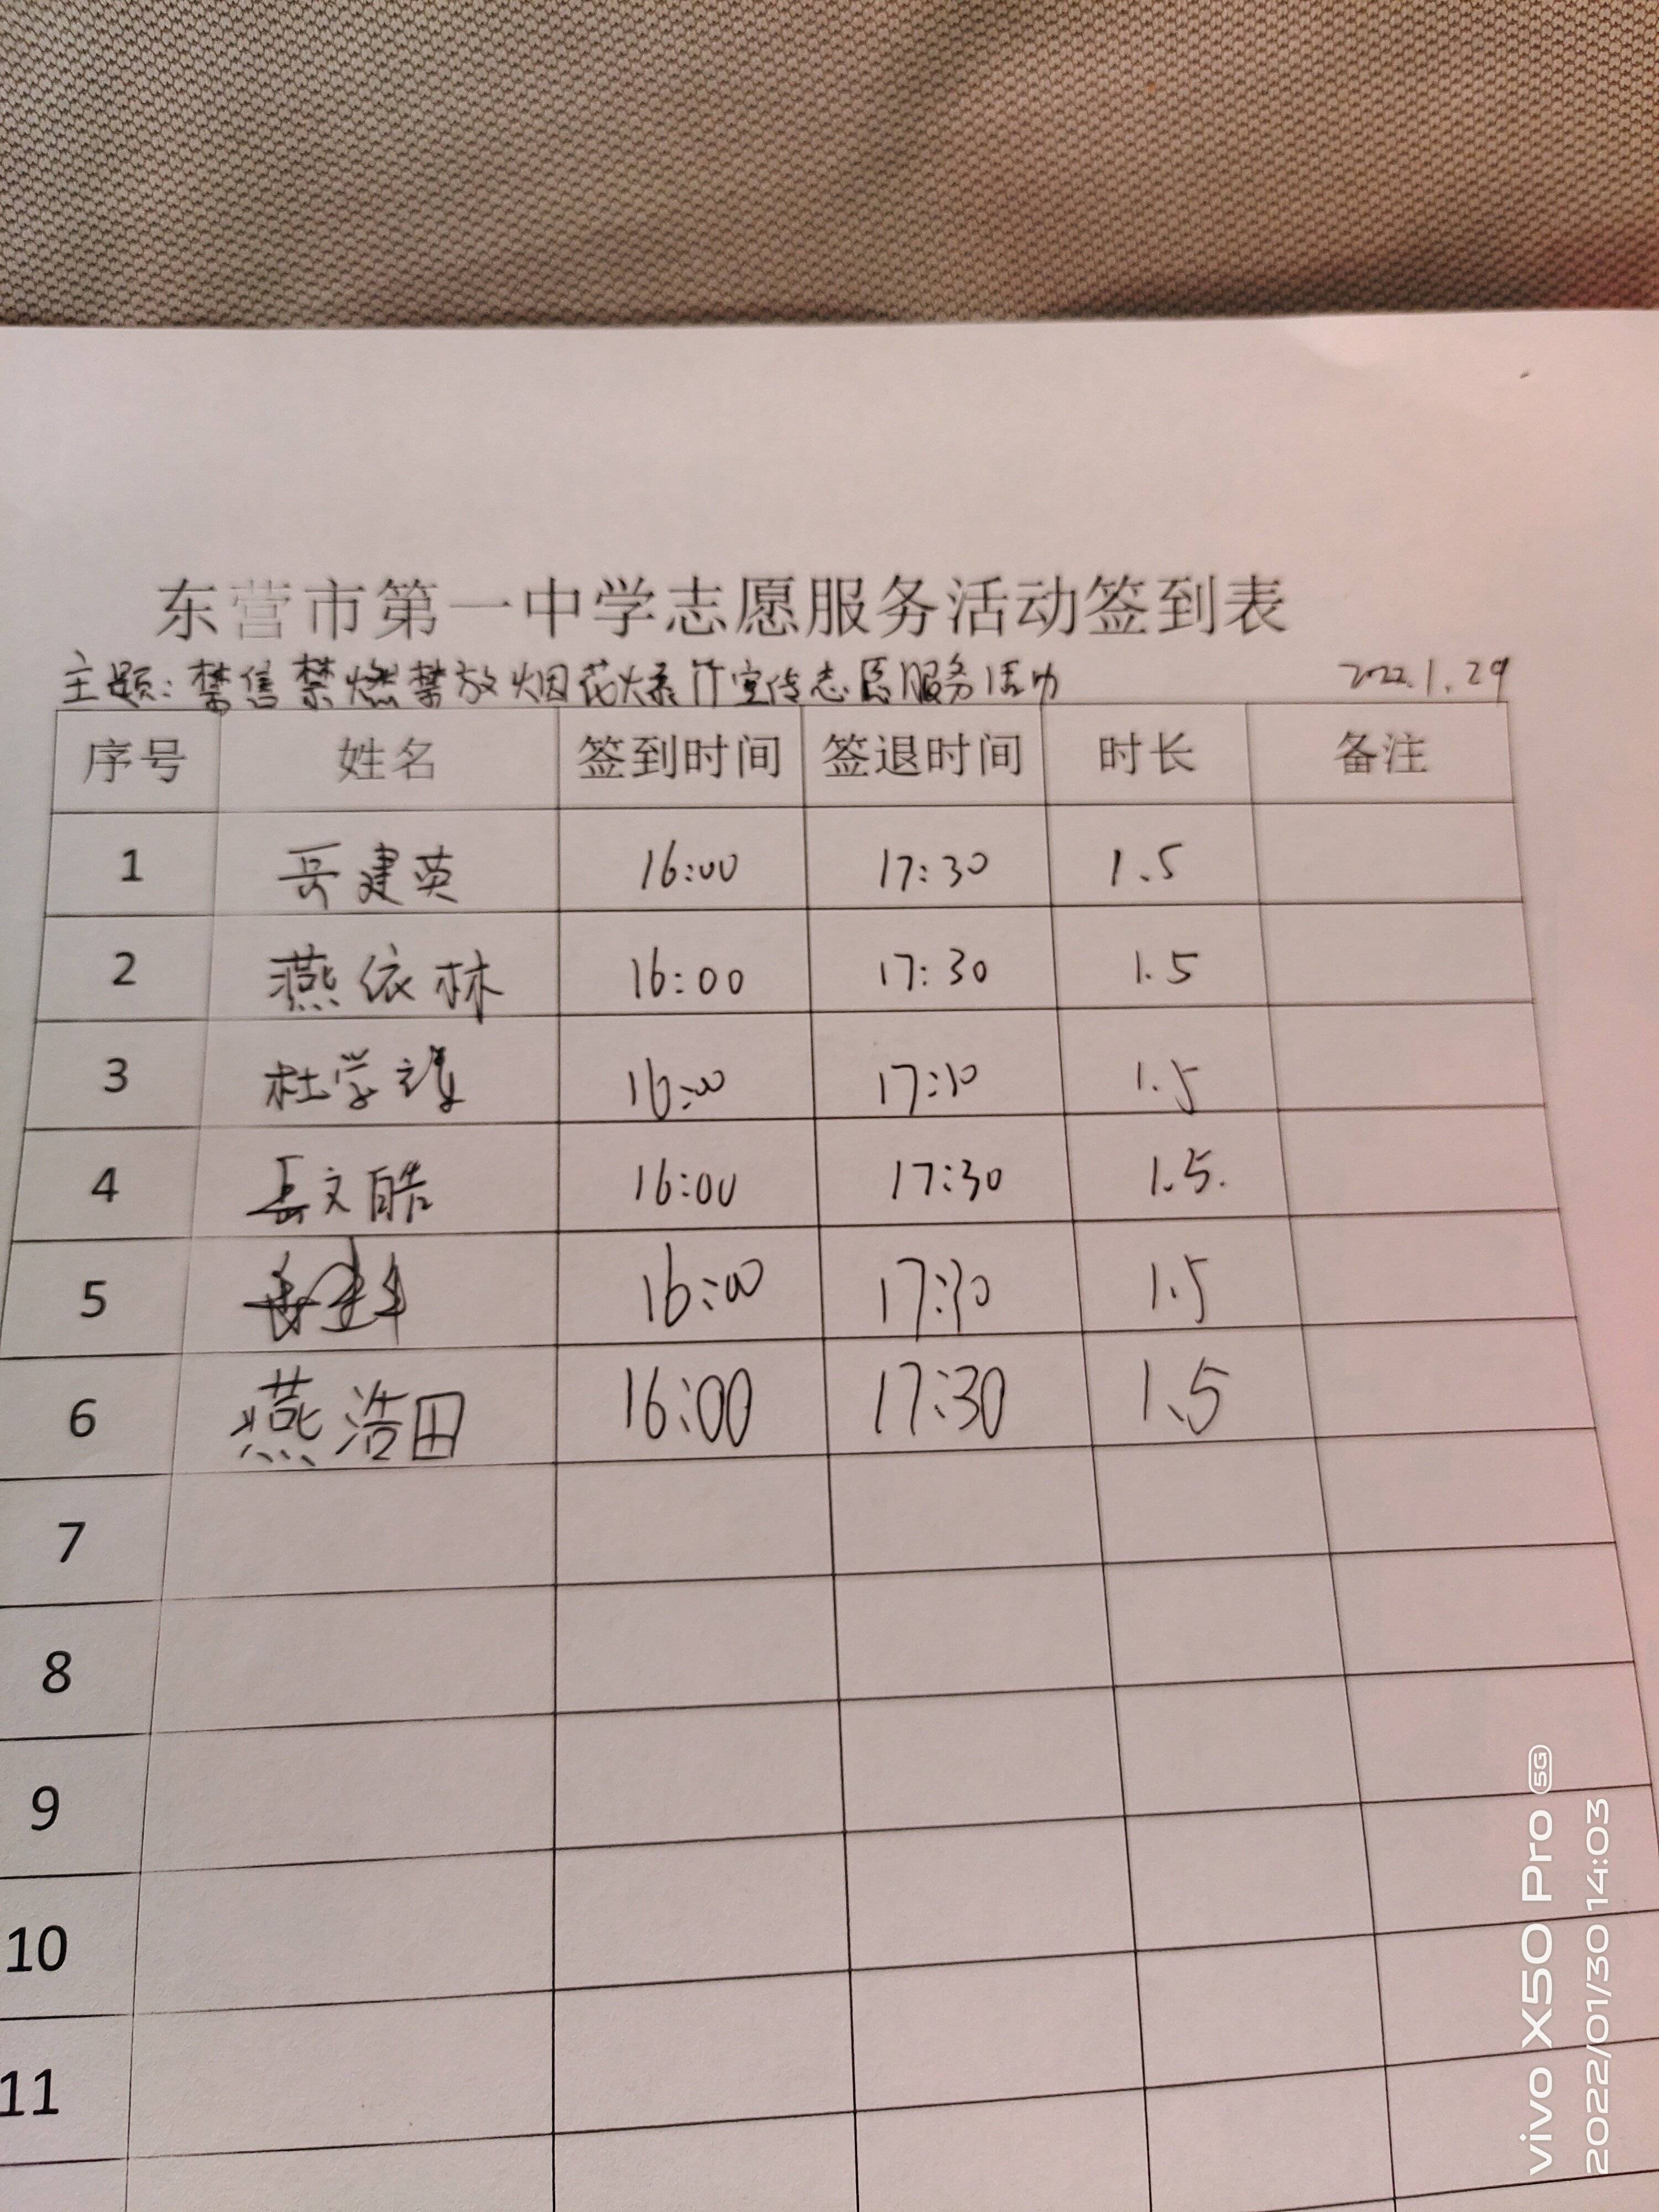 东营市第一中学志愿服务活动签到表
主题：禁售禁燃禁放烟花爆竹宣传志愿服务活动 2022.1.29
序号 姓名 签到时间 签退时间 时长 备注
1 岳建英 16:00 17:30 1.5
2 燕依林 16:00 17:30 1.5
3 杜学 16:00 17:30 1.5
4 岳文皓 16:00 17:30 1.5.
5 16:00 17:30 1.5
6 燕浩田 16:00 17:30 1.5
7
8
9
10
11
vivo X50 Pro 5G
2022/01/30 14:03